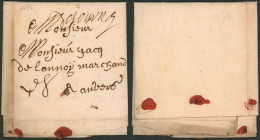 Monsieur
Monsieur Jacq
de Lannoy Marchand
A anvers